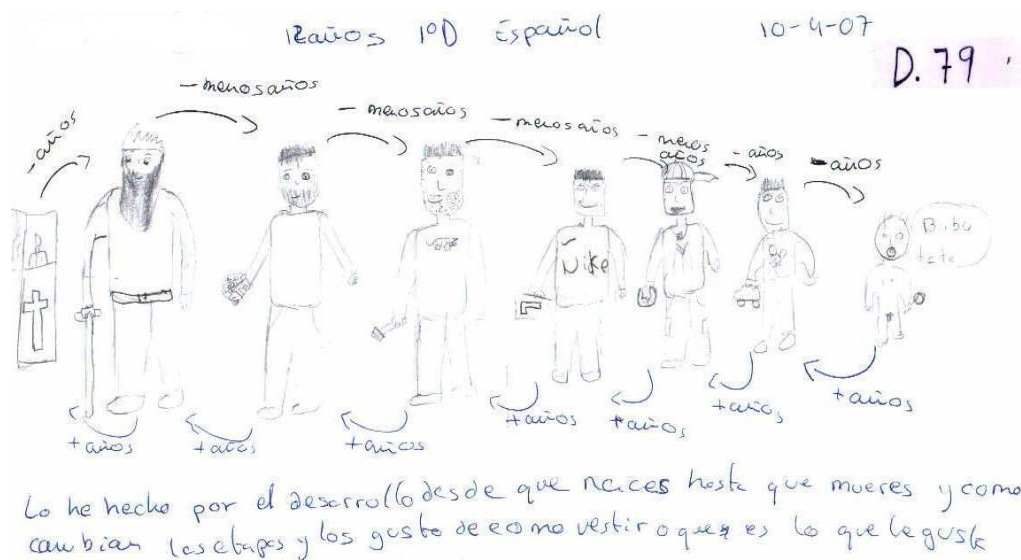 12años 1ºD Español 10-4-07
D.79
-años
-menosaños
-menosaños
-menosaños
-menos
años
-años
-años
Nike
Bibu
tete
+años
+años
+años
+años
+años
+años
+años
Lo he hecho por el desorrollo desde que naces hasta que mueres y como
cambian las etapas y los gusto de como vestir o que es lo que le gusta